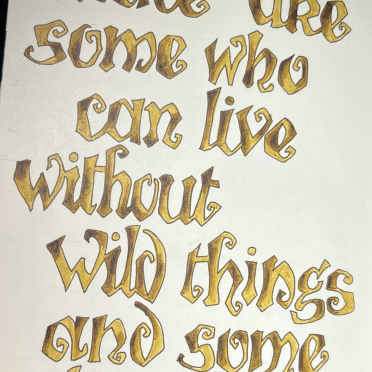 are
some who
can live
without
wild things
and some